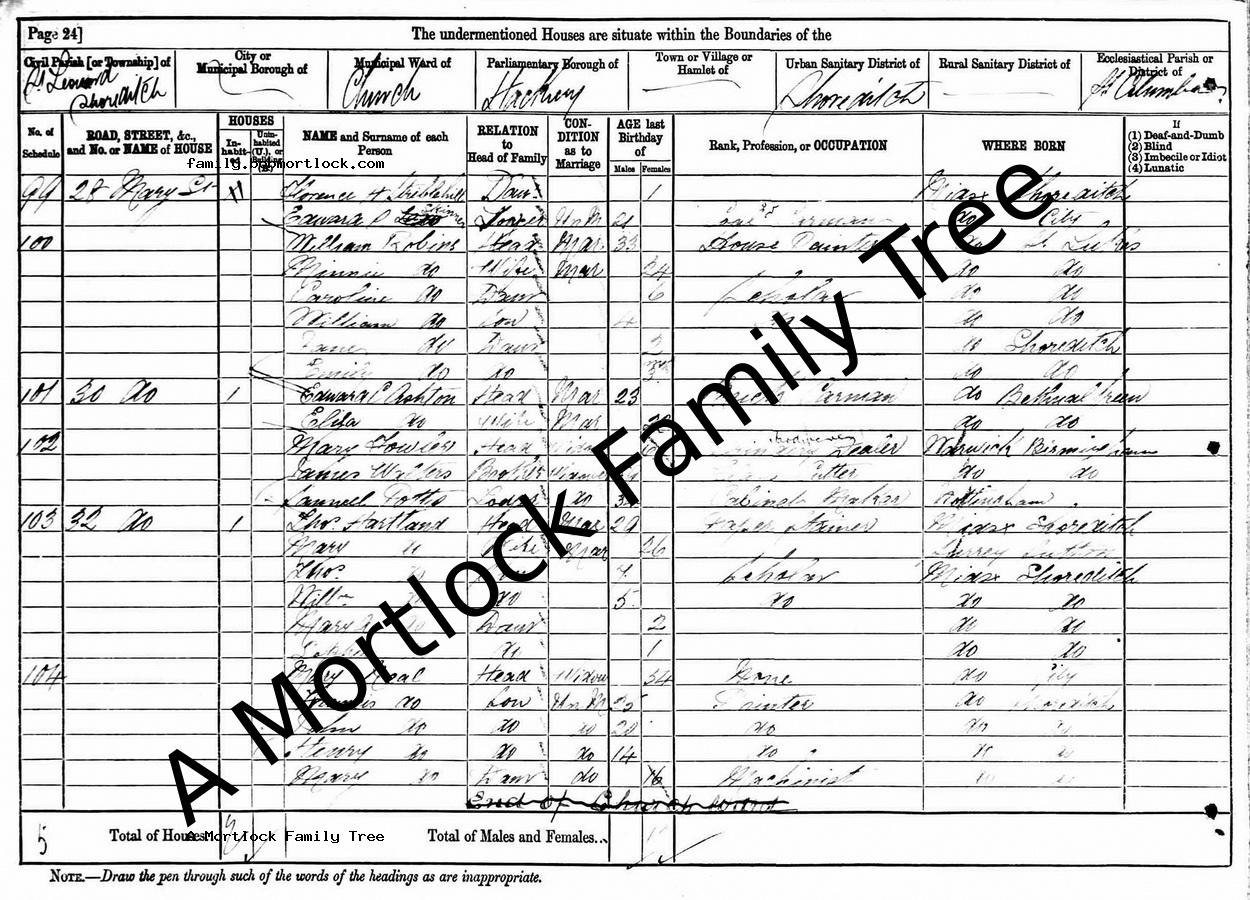 Page 24] The undermentioned Houses are situate within the Boundaries of the
Civil Parish [or Township] of City or Municipal Borough of Municipal Ward of Parliamentary Borough of Town or Village or Hamlet of Urban Sanitary District of Rural Sanitary District of Ecclesiastical Parish or District of
St Leonard Shoreditch Church Hackney Shoreditch St Columba
No. of Schedule ROAD, STREET, &c., and No. or NAME of HOUSE HOUSES Inhabited Uninhabited (U.), or Building (B.) NAME and Surname of each Person RELATION to Head of Family CONDITION as to Marriage AGE last Birthday of Males Females Rank, Profession, or OCCUPATION WHERE BORN If (1) Deaf-and-Dumb (2) Blind (3) Imbecile or Idiot (4) Lunatic
family.bobmortlock.com
99 28 Mary St Florence Daur 1 Midsx Shoreditch
Edward Lodger Un M 21 Carman do City
100 William Robins Head Mar 33 House Painter do St Lukes
Minnie do Wife Mar 24 do do
Caroline do Daur 6 Scholar do do
William do Son 4 do do
Jane do Daur 2 do Shoreditch
Emily do do 3 do do
101 30 do 1 Edward Ashton Head Mar 23 Carman do Bethnal Green
Eliza do Wife Mar do do
102 Mary Fowler Head Dealer Warwick Birmingham
James Walters Brother Cutter do do
Samuel Potts Lodgr do Cabinet Maker Nottingham
103 32 do 1 Thos. Hartland Head Mar 29 Paper Stainer Midsx Shoreditch
Mary Wife Mar 26 Surrey Sutton
Thos. 7 Scholar Midsx Shoreditch
Willm do 5 do do do
Mary Daur 2 do do
do 1 do do
104 Mary Neal Head Widow 54 None do City
do Son Un M 25 Painter do Shoreditch
John do do do 20 do do
Henry do do do 14 do
Mary do Daur do 16 Machinist
End of Church Ward
5 Total of Houses Total of Males and Females..
A Mortlock Family Tree
NOTE.—Draw the pen through such of the words of the headings as are inappropriate.
A Mortlock Family Tree